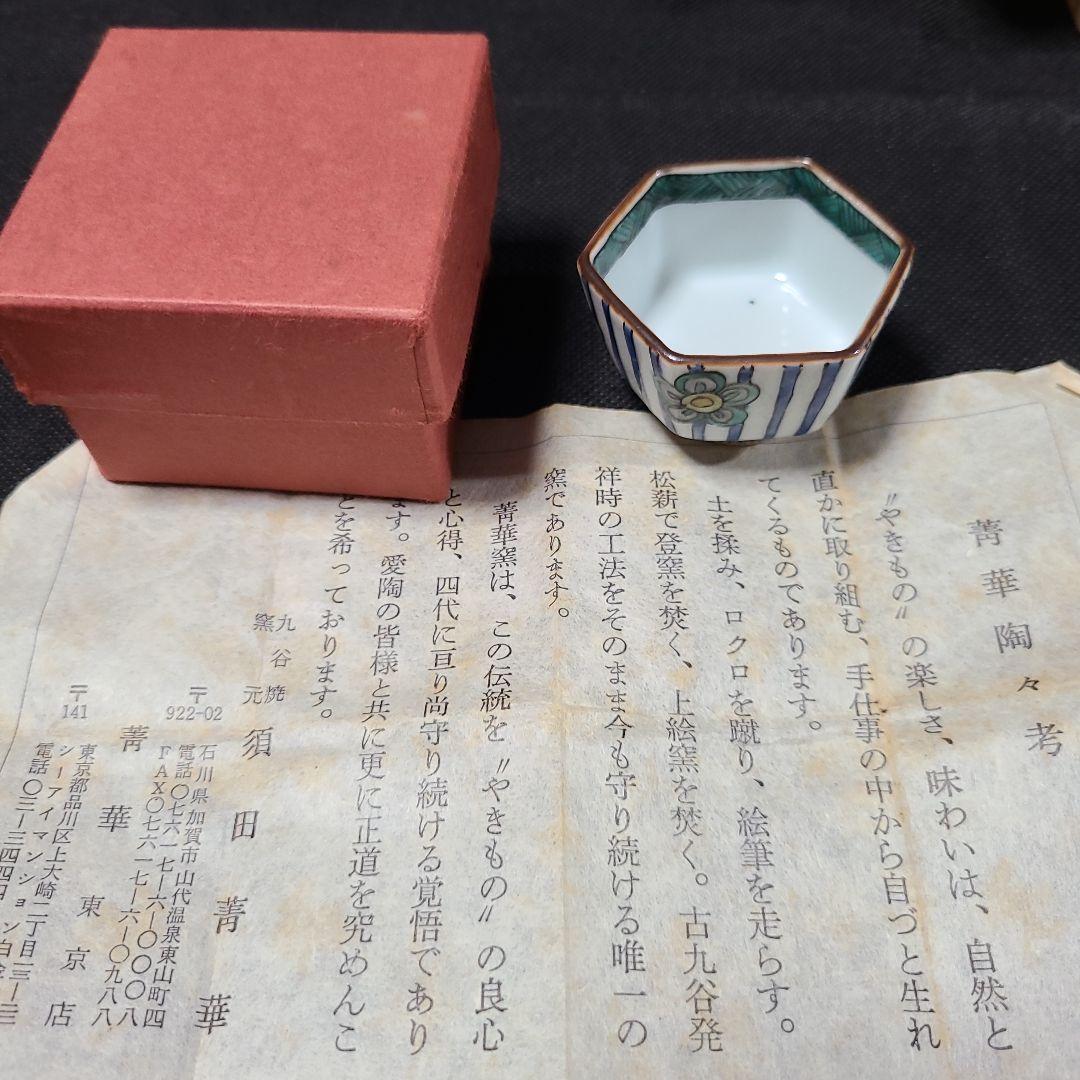 菁華陶々考
〝やきもの〟の楽しさ、味わいは、自然と
直かに取り組む、手仕事の中から自づと生れ
てくるものであります。
土を揉み、ロクロを蹴り、絵筆を走らす。
松薪で登窯を焚く、上絵窯を焚く。古九谷発
祥時の工法をそのまま今も守り続ける唯一の
窯であります。
菁華窯は、この伝統を〝やきもの〟の良心
と心得、四代に亘り尚守り続ける覚悟であり
ます。愛陶の皆様と共に更に正道を究めんこ
とを希っております。
九谷焼
窯元
須田菁華
〒922-02
石川県加賀市山代温泉東山町四
電話〇七六一七―六―〇〇〇八
FAX〇七六一七―六―〇九八八
菁華東京店
〒141
東京都品川区上大崎二丁目
シーアイマンション白金
電話〇三―三四四